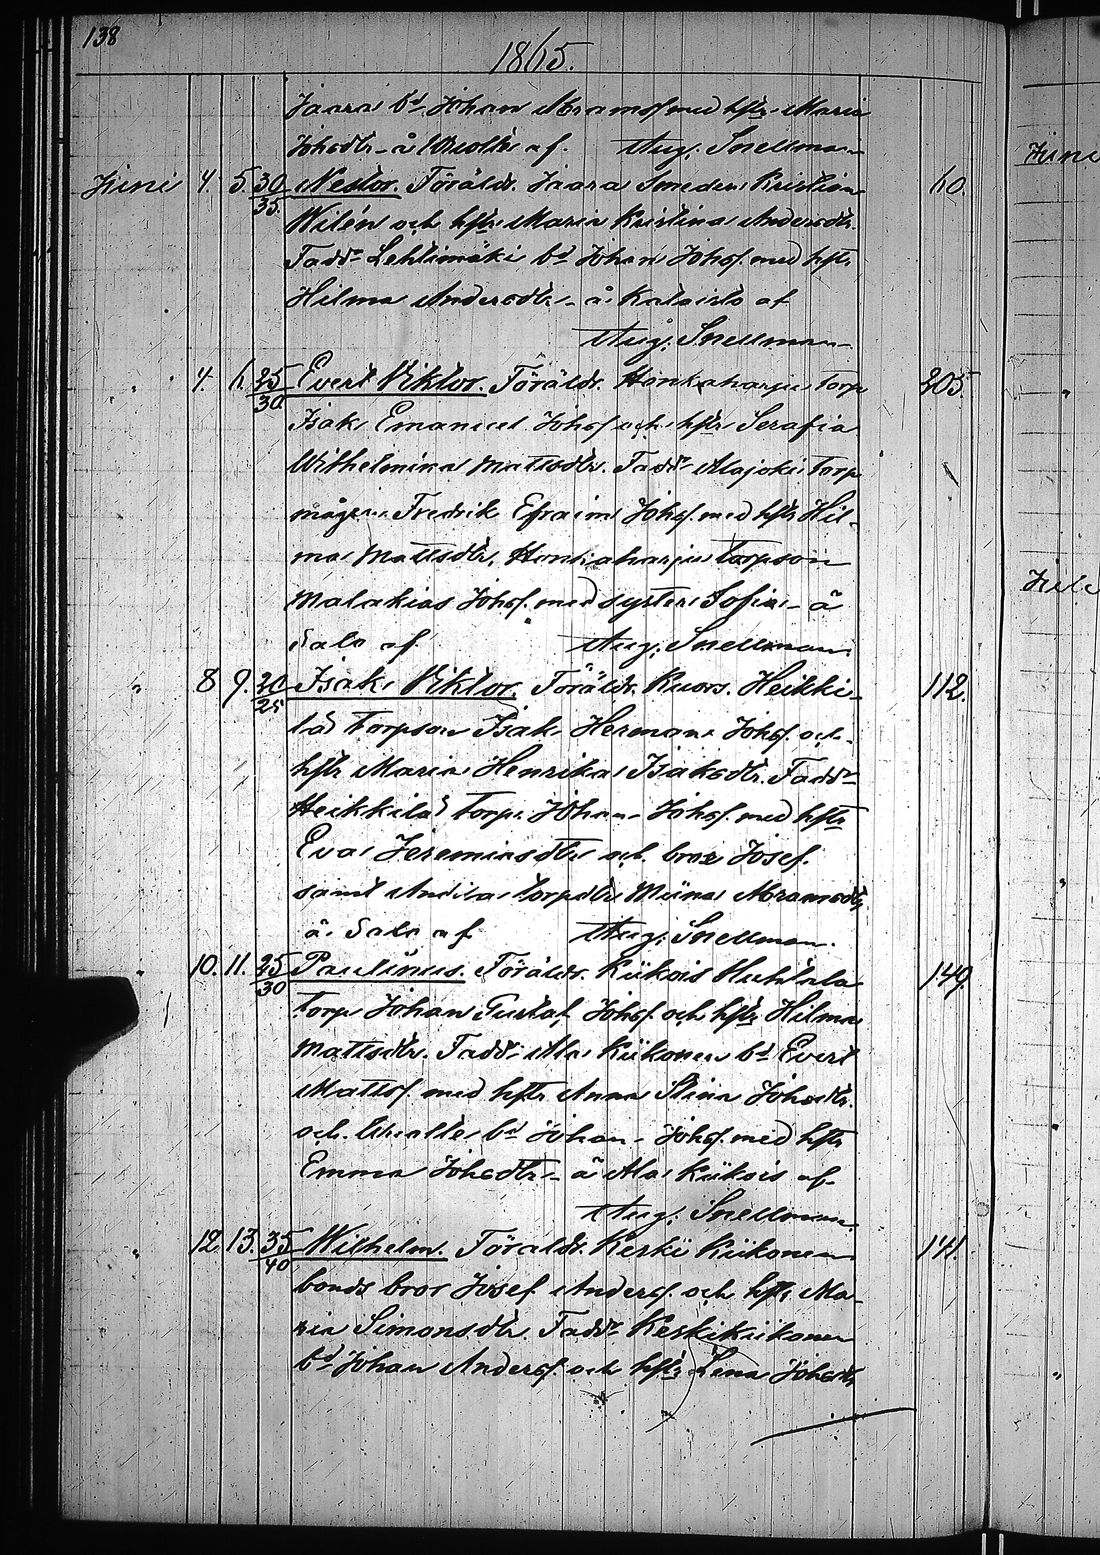 138
1865.
Jaara bd Johan Abramsf med hstr Maria
Johsdtr å af. Aug. Snellman
Juni 4. 5. 30/35 Nestor. Föräldr. Jaara Smeden Kristian 60.
Wilén och hstr Maria Kristina Andersdtr.
Faddr Lehtimäki bd Johan Johsf. med hstr
Hilma Andersdtr å Kalaisto af
Aug. Snellman
" 4. 6. 25/30 Evert Viktor. Föräldr. Honkaharju torp 205.
Isak Emanuel Johsf och hstr Serafia
Wilhelmina Mattsdtr. Faddr Alajoki torp
mågen Fredrik Efraim Johsf. med hstr Hil-
ma Mattsdtr, Honkaharju torpson
Malakias Johsf. med syster Sofia å
Salo af Aug. Snellman.
" 8 9. 20/25 Isak Viktor. Föräldr. Kuors. Heikki- 112.
lä torpson Isak Herman Johsf. och
hstr Maria Henrika Isaksdtr. Faddr
Heikkilä torp. Johan Johsf. med hstr
Eva Jeremiasdtr och bror Josef.
samt torpdtr Miina Abramsdtr
å Salo af Aug. Snellman.
" 10. 11. 25/30 Paulinus. Föräldr. Kiikois Huhtala 149.
torp Johan Gustaf Johsf och hstr Hilma
Mattsdtr. Faddr Ala Kiikonen bd Evert
Mattsf. med hstr Anna Stina Johsdtr.
och bd Johan Johsf. med hstr
Emma Johsdtr å Ala Kiikois af
Aug. Snellman.
" 12. 13. 35/40 Wilhelm. Föräldr. Keski Kiikonen 141.
bonds bror Josef Andersf. och hstr Ma-
ria Simonsdtr. Faddr Keskikiikonen
bd Johan Andersf. och hstr Lena Johsdtr
Juni
"
Juli
"
"
"